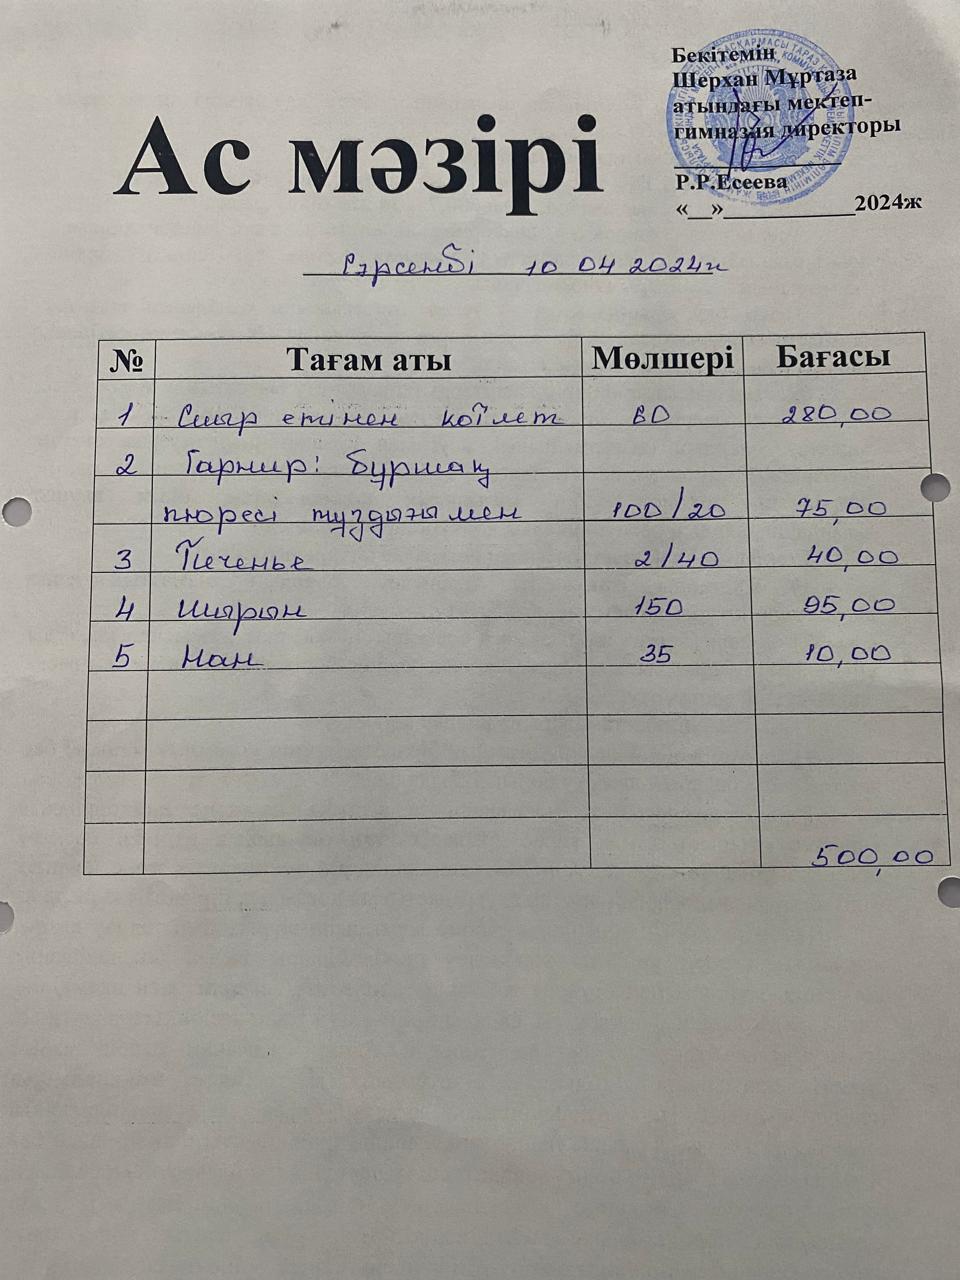 Бекітемін
Шерхан Мұртаза
атындағы мектеп-
гимназия директоры
Р.Р.Есеева
«__»____________2024ж
Ас мәзірі
Сәрсенбі 10 04 2024ж
№ Тағам аты Мөлшері Бағасы
1 Сиыр етінен котлет 80 280,00
2 Гарнир: бұршақ
пюресі тұздығымен 100/20 75,00
3 Печенье 2/40 40,00
4 Шырын 150 95,00
5 Нан 35 10,00
500,00